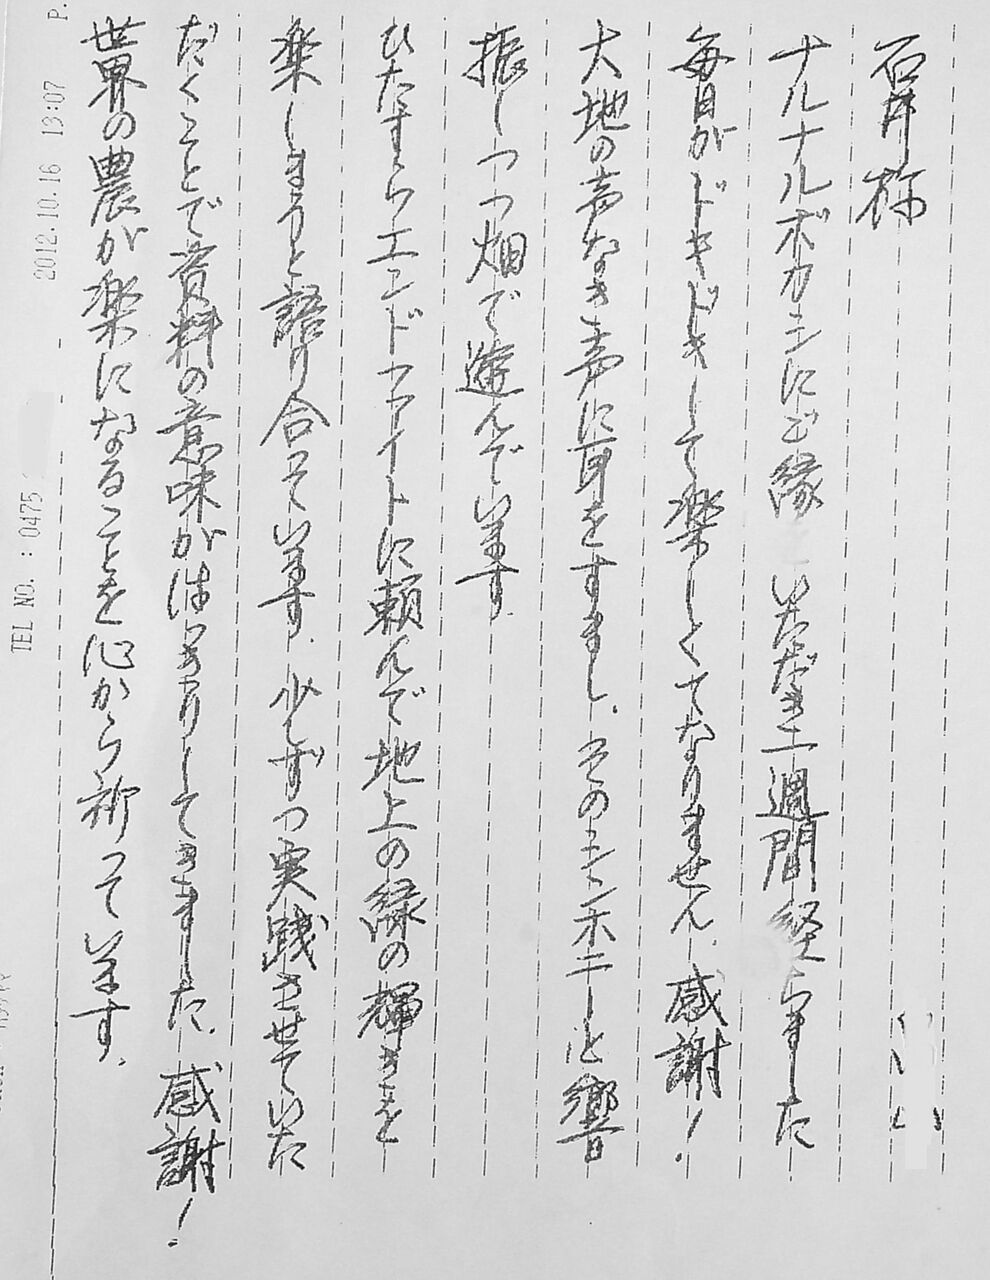 石井様
ナルナルボカシにご縁 いただき二週間経ちました
毎日がドキドキして楽しくてなりません。感謝！
大地の声なき声に耳をすまし、そのシンホニーと響
振しつつ畑で遊んでいます。
ひたすらエンドファイトに頼んで地上の緑の輝きを
楽しまうと語り合っています。少しずつ実践させていた
だくことで資料の意味がはっきりしてきました。感謝！
世界の農が楽になることを心から祈っています。
2012.10.16 13:07 P.
TEL NO. : 0475